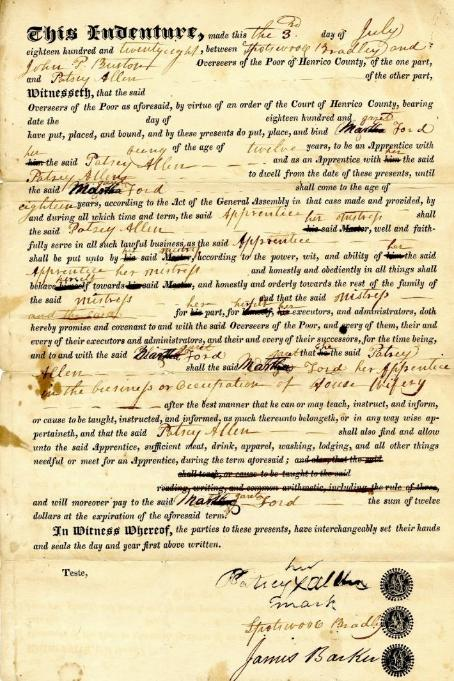 This Indenture, made this the 3rd day of July
eighteen hundred and twenty eight, between Spotswood Bradley and
John P. Overseers of the Poor of Henrico County, of the one part,
and Patsey Allen of the other part,
Witnesseth, that the said
Overseers of the Poor as aforesaid, by virtue of an order of the Court of Henrico County, bearing
date the day of eighteen hundred and
have put, placed, and bound, and by these presents do put, place, and bind Martha garet Ford
being of the age of twelve years, to be an Apprentice with
her him the said Patsey Allen and as an Apprentice with her him the said
Patsey Allen to dwell from the date of these presents, until
the said Martha garet Ford shall come to the age of
eighteen years, according to the Act of the General Assembly in that case made and provided, by
and during all which time and term, the said Apprentice her mistress shall
the said Patsey Allen his said Master, well and faith-
fully serve in all such lawful business, as the said Apprentice
shall be put unto by her his said mistress Master, according to the power, wit, and ability of her him the said
Apprentice her mistress and honestly and obediently in all things shall
behave herself himself towards his said Master, and honestly and orderly towards the rest of the family of
the said mistress and that the said mistress
for her his part, for herself himself, her his executors, and administrators, doth
hereby promise and covenant to and with the said Overseers of the Poor, and every of them, their and
every of their executors and administrators, and their and every of their successors, for the time being,
and to and with the said Martha garet Ford that she he the said Patsey
Allen shall the said Martha garet Ford her Apprentice
in the business or occupation of House Wifery
after the best manner that he can or may teach, instruct, and inform,
or cause to be taught, instructed, and informed, as much thereunto belongeth, or in any way wise ap-
pertaineth, and that the said Patsey Allen shall also find and allow
unto the said Apprentice, sufficient meat, drink, apparel, washing, lodging, and all other things
needful or meet for an Apprentice, during the term aforesaid; and also that the said
shall teach, or cause to be taught to the said
reading, writing, and common arithmetic, including the rule of three,
and will moreover pay to the said Martha garet Ford the sum of twelve
dollars at the expiration of the aforesaid term.
In Witness Whereof, the parties to these presents, have interchangeably set their hands
and seals the day and year first above written.
Teste,
her
Patsey x Allen
mark
Spotswood Bradley
James Barker